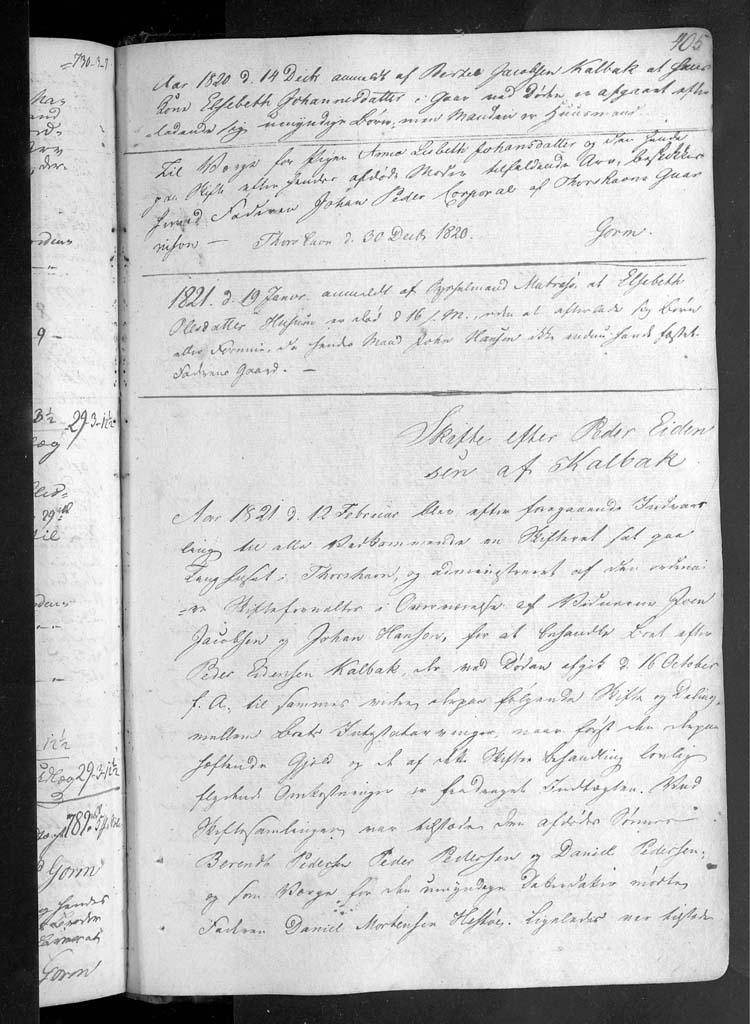 405
Aar 1820 d. 14 Decb anmeldt af Berte Jacobsen Kalbak at hans
Kone Elsebeth Johannesdatter i Gaar ved Døden er afgaaet efter-
ladende sig umyndige Børn, men Manden er Huusmand
Til Værge for Pigen Anna Lisbeth Johansdatter og den hende
paa Skifte efter hendes afdøde Moder tilfaldende Arv, beskikkes
herved Faderen Johan Peder Corporal af Thorshavns Guar
nison — Thorshavn d. 30 Decb 1820. Gorm.
1821. d. 19 Janvr. anmeldt af Sysselmand Matras, at Elsebeth
Olesdatter Husum er død d 16 s. M., uden at efterlade sig Børn
eller Formue, da hendes Mand John Hansen ikke endnu havde fæstet
Faderens Gaard. —
Skifte efter Peder Eiden
sen af Kalbak
Aar 1821 d. 12 Februar blev efter foregaaende Indvars
ling til alle Vedkommende en Skifteret sat paa
Tinghuset i Thorshavn, og administreret af den ordinai
re Skifteforvalter i Overværelse af Vidnerne Joen
Jacobsen og Johan Hansen, for at behandle Boet efter
Peder Eidensen Kalbak, der ved Døden afgik d. 16 October
f. A., til sammes videre derpaa følgende Skifte og Deling
mellem Boets Intestatarvinger, naar først den derpaa
hæftende Gjæld og de af dette Skiftes Behandling lovlig
flydende Omkostninger er fradraget Indtægten. Ved
Skiftesamlingen var tilstede den afdødes Sønner
Berendt Pedersen Peder Pedersen og Daniel Pedersen,
og som Værge for den umyndige mødte
Faderen Daniel Mortensen Hestøe. Ligeledes var tilstede
=730-3-7
9 -
3½ 29-3-11½
læg
29
til
1½
29-3-11½
789
Gorm
og hendes
Gorm